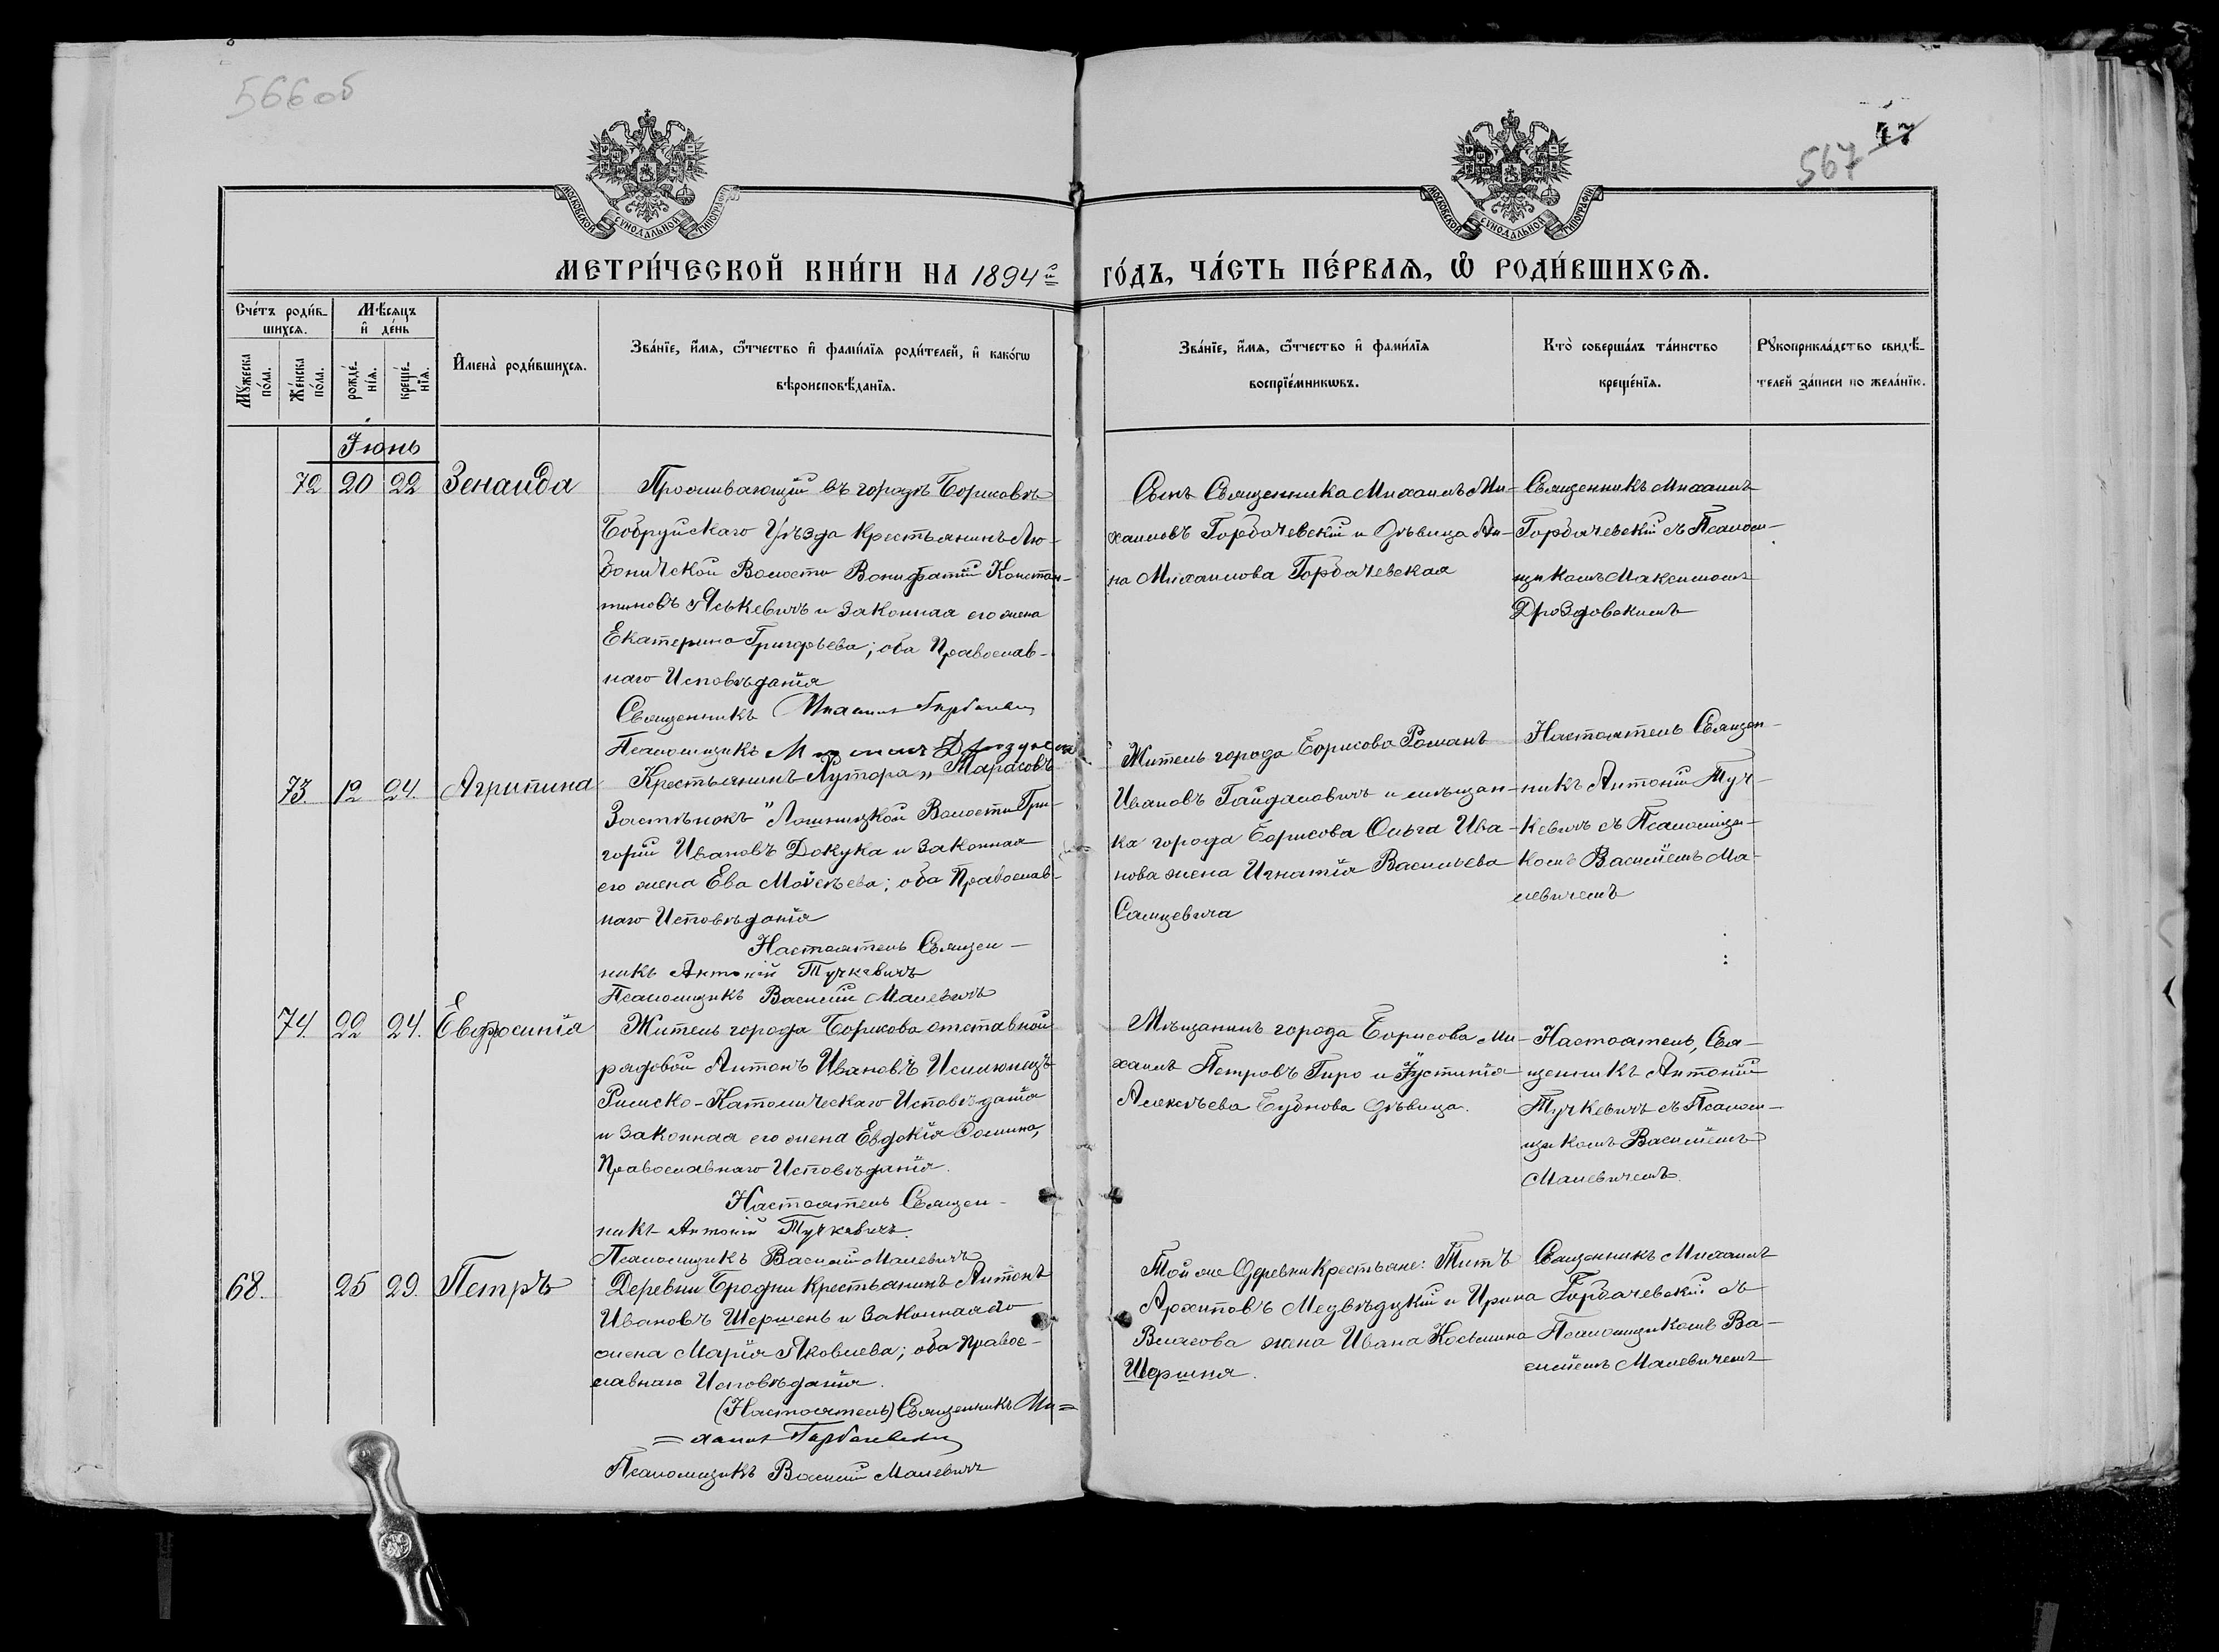 566 об
567
47
МОСКОВСКОЙ СУНОДАЛЬНОЙ ТИПОГРАФИИ
МОСКОВСКОЙ СУНОДАЛЬНОЙ ТИПОГРАФИИ
МЕТРИ́ЧЕСКОЙ КНИ́ГИ НА 1894й
ГО́ДЪ, ЧА́СТЬ ПЕ́РВАѦ, Ѡ РОДИ́ВШИХСѦ.
Сче́тъ роди́в-
шихсѧ.
Мꙋ́жеска по́ла.
Же́нска по́ла.
Мѣ́сѧцъ и҆ де́нь
рожде́-нїѧ.
креще́-нїѧ.
И҆мена̀ роди́вшихсѧ.
Зва́нїе, и҆́мѧ, ѻ҆́тчество и҆ фами́лїѧ роди́телей, и҆ како́гѡ
вѣроисповѣ́данїѧ.
Зва́нїе, и҆́мѧ, ѻ҆́тчество и҆ фами́лїѧ
воспрїе́мникѡвъ.
Кто̀ соверша́лъ та́инство
креще́нїѧ.
Рꙋкоприкла́дство свидѣ́-
телей за́писи по жела́нїю.
Іюнь
72 20 22 Зенаида
Проживающій въ городѣ Борисовѣ
Бобруйскаго Уѣзда Крестьянинъ Лю-
боничской Волости Вонифатій Констан-
тиновъ Яськевичъ и Законная его жена
Екатерина Григорьева; оба Православ-
наго Исповѣданія
Священникъ Михаилъ Горбачевскій
Псаломщикъ Максимъ Дроздовскій
Сынъ Священника Михаилъ Ми-
хаиловъ Горбачевскій и Дѣвица Ан-
на Михаилова Горбачевская
Священникъ Михаилъ
Горбачевскій съ Псалом-
щикомъ Максимомъ
Дроздовскимъ
73. 19 24. Агрипина
Крестьянинъ Хутора „Тарасовъ
Застѣнокъ" Лошницкой Волости Гри-
горій Ивановъ Докука и Законная
его жена Ева Моисѣева; оба Православ-
наго Исповѣданія
Настоятель Священ-
никъ Антоній Тучкевичъ
Псаломщикъ Василій Малевичъ
Житель города Борисова Романъ
Ивановъ Гайдаловичъ и мѣщан-
ка города Борисова Ольга Ива-
нова жена Игнатія Васильева
Самцевича
Настоятель Священ-
никъ Антоній Туч-
кевичъ съ Псаломщи-
комъ Василіемъ Ма-
левичемъ
74. 22 24. Евфросинія
Житель города Борисова отставной
рядовой Антонъ Ивановъ
Римско-Католическаго Исповѣданія
и Законная его жена Евдокія Фомина,
Православнаго Исповѣданія.
Настоятель Священ-
никъ Антоній Тучкевичъ.
Псаломщикъ Василій Малевичъ
Мѣщанинъ города Борисова Ми-
хаилъ Петровъ Гиро и Іустинія
Алексѣева Бубнова дѣвица.
Настоятель, Свя-
щенникъ Антоній
Тучкевичъ съ Псалом-
щикомъ Василіемъ
Малевичемъ.
68. 25 29. Петръ
Деревни Бродни Крестьянинъ Антонъ
Ивановъ Шершень и Законная его
жена Марія Яковлева; оба Правос-
лавнаго Исповѣданія.
(Настоятель) Священникъ Ми=
=хаилъ Горбачевскій
Псаломщикъ Василій Малевичъ
Той же Деревни Крестьяне: Титъ
Архиповъ Медвѣдцкій и Ирина
Власова жена Ивана Косьмина
Шершня.
Священникъ Михаилъ
Горбачевскій съ
Псаломщикомъ Ва-
силіемъ Малевичемъ